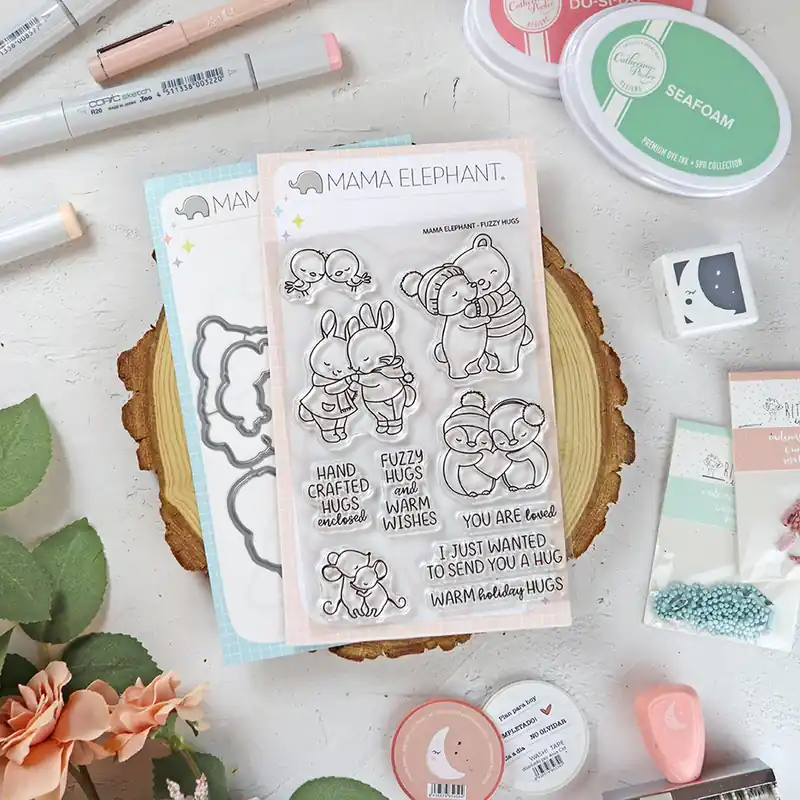 COPIC sketch
R20
4 511338 003220
Catherine Pooler
DESIGNS
Catherine Pooler
DESIGNS
SEAFOAM
PREMIUM DYE INK • SPA COLLECTION
MAMA ELEPHANT
MAMA ELEPHANT - FUZZY HUGS
HAND
CRAFTED
HUGS
enclosed
FUZZY
HUGS
and
WARM
WISHES
YOU ARE loved
I JUST WANTED
TO SEND YOU A HUG
WARM holiday HUGS
MAM
Plan para hoy
MPLETADO!
a a día NO OLVIDAR
WASHI TAPE